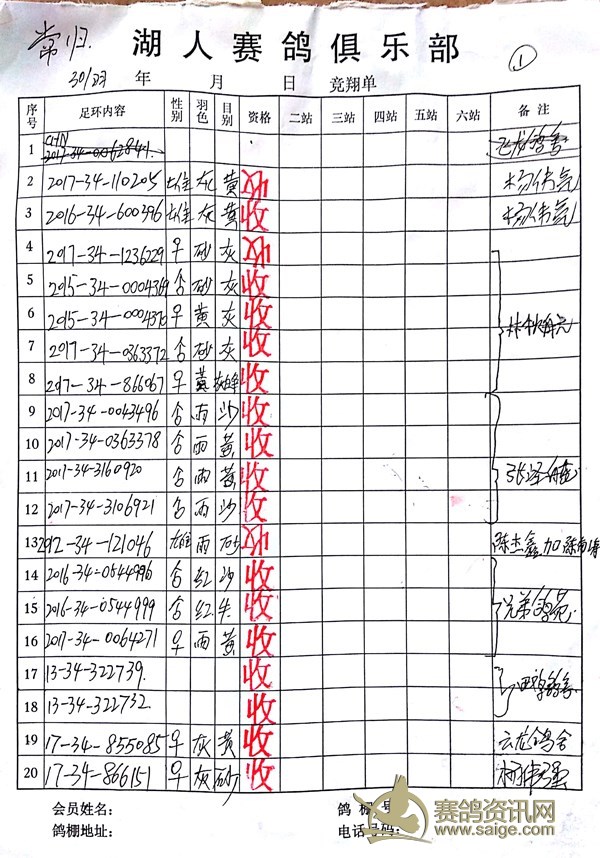 常归.
湖人赛鸽俱乐部
①
30/23 年 月 日 竞翔单
序号 足环内容 性别 羽色 目别 资格 二站 三站 四站 五站 六站 备注
1 CHN 2017-34-0062841.
2 2017-34-110205 雄 灰 黄
3 2016-34-600396 雄 灰 黄 收 杨伟亮
4 2017-34-1236229 早 砂 灰
5 2015-34-0004369 舍 砂 灰 收
6 2015-34-0004370 早 黄 灰 收
7 2017-34-0363372 舍 砂 灰 收
8 2017-34-866067 早 黄 收
9 2017-34-0043496 舍 雨 沙 收
10 2017-34-0363378 舍 雨 黄 收
11 2017-34-3160920 舍 雨 黄 收
12 2017-34-3106921 舍 雨 沙 收
13 2012-34-121046 雄 雨 砂 陈杰鑫加
14 2016-34-0544996 舍 红 沙 收
15 2016-34-0544999 舍 红 牛 收 兄弟鸽苑
16 2017-34-0064271 早 雨 黄 收
17 13-34-322739. 收
18 13-34-322732. 收
19 17-34-855085 早 灰 黄 收 云龙鸽舍
20 17-34-866151 早 灰 砂 收 杨伟强
会员姓名: 鸽棚号
鸽棚地址: 电话号码:
赛鸽资讯网
www.saige.com